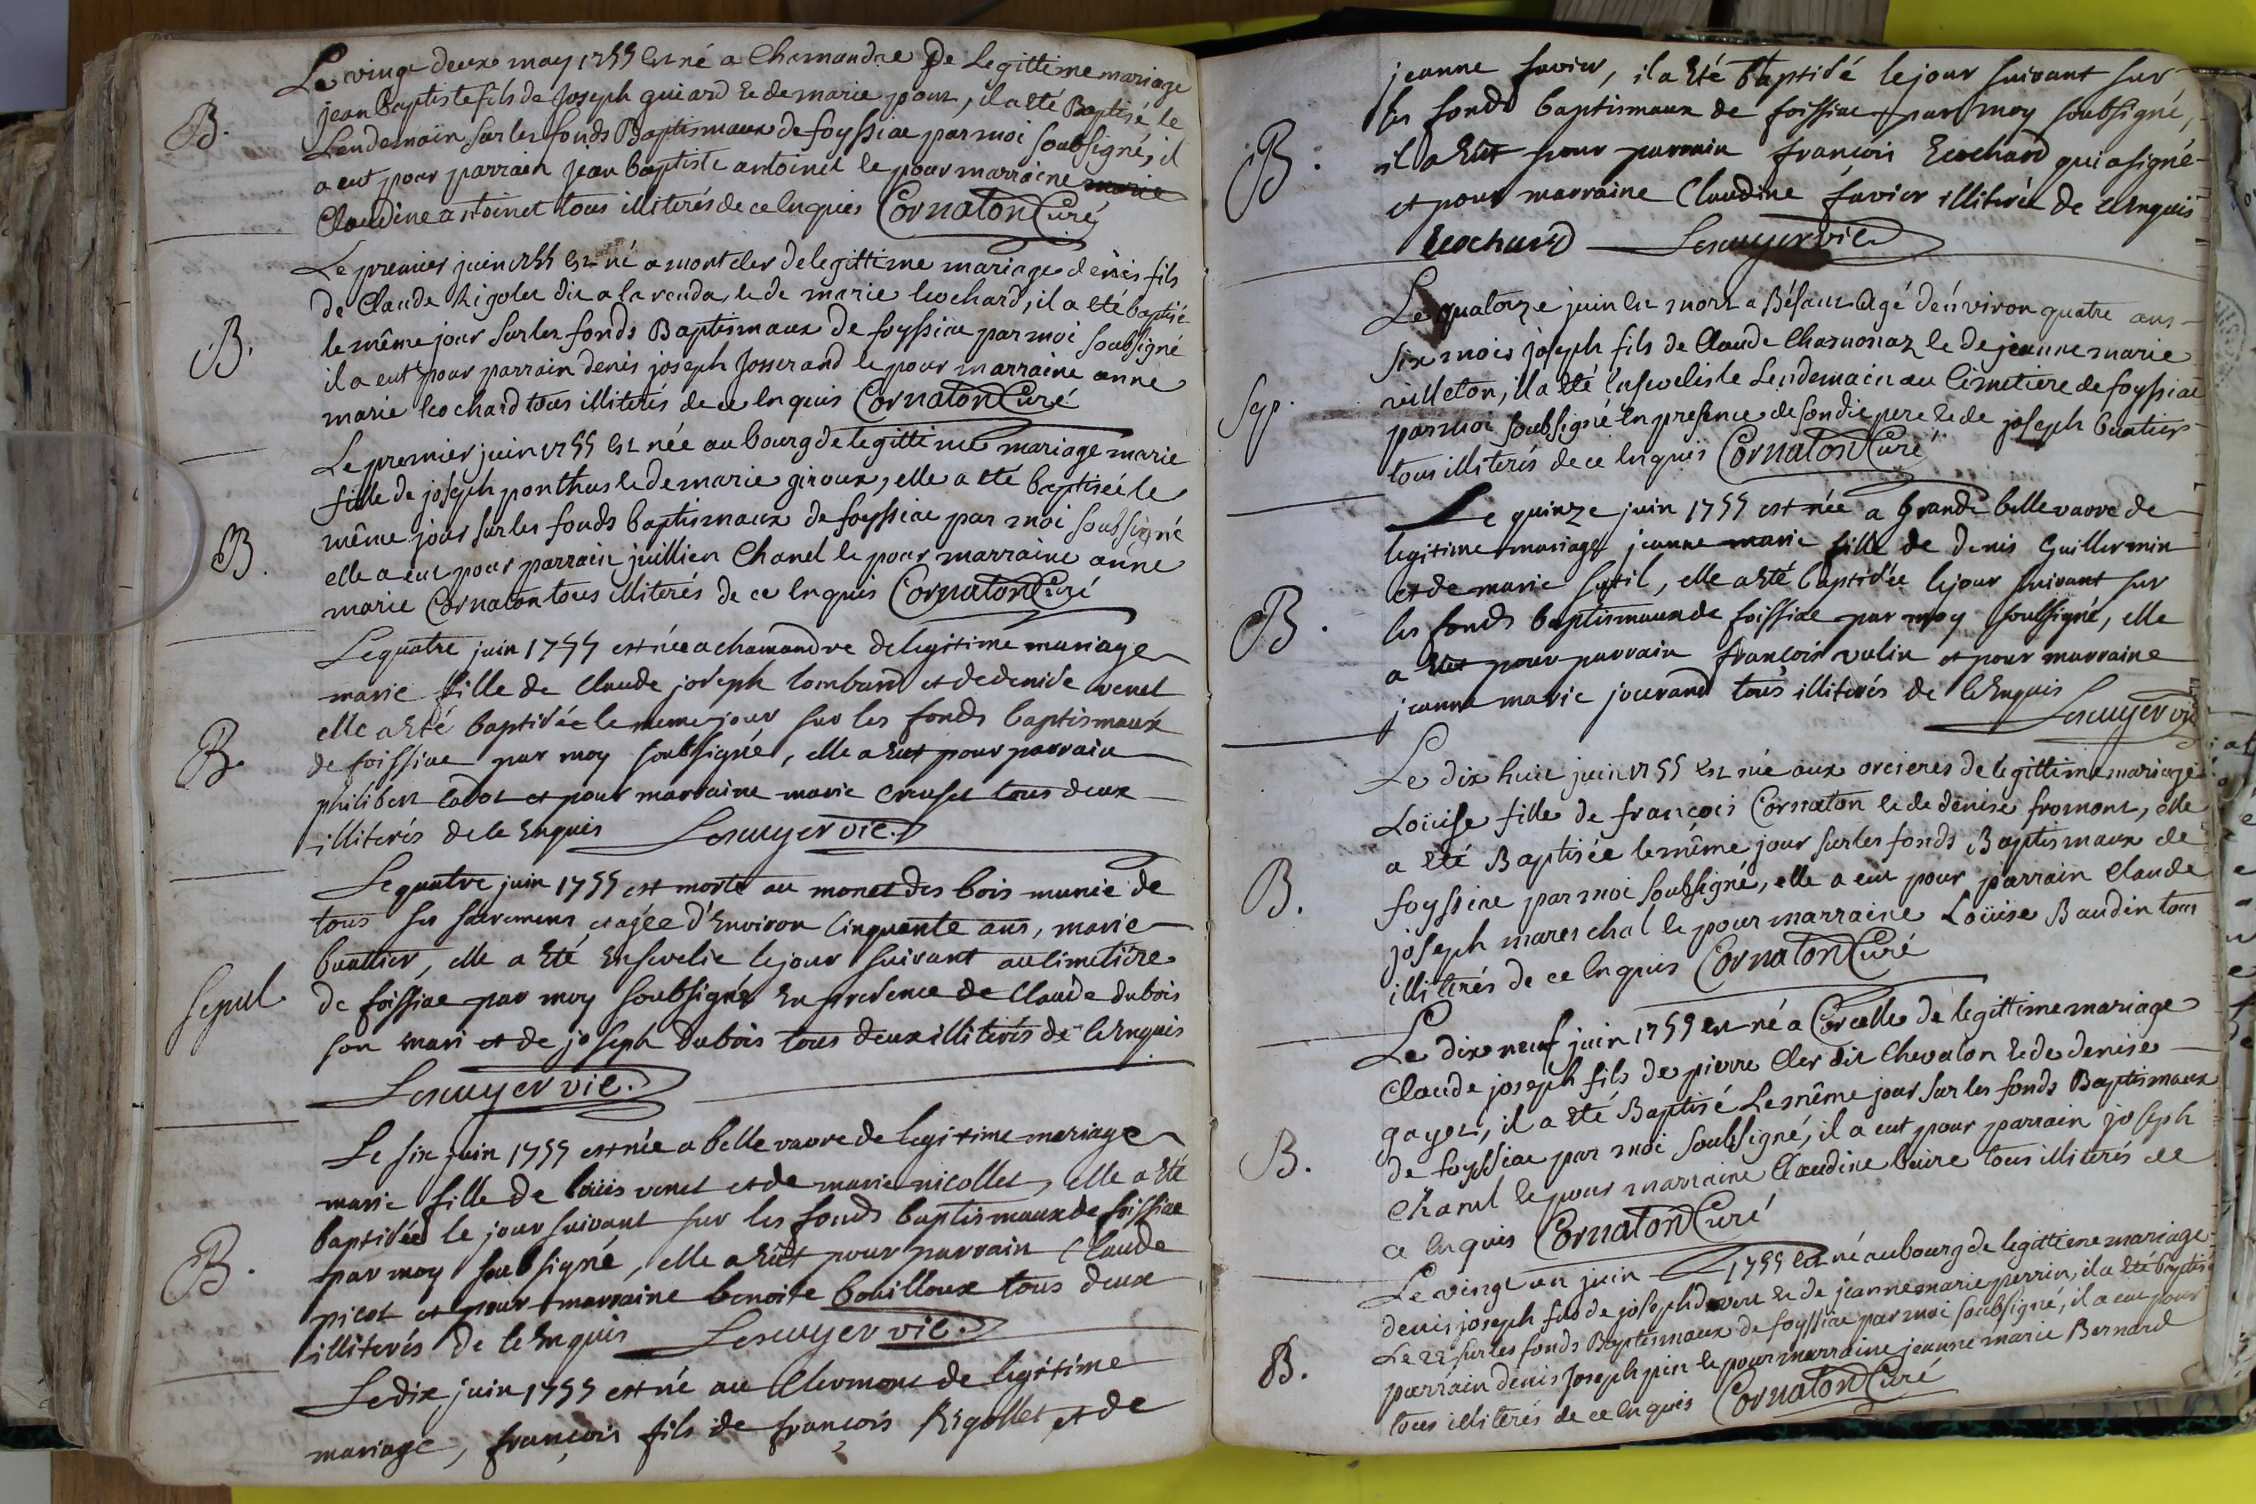 Le vingt deux may 1755 est né a Chamandre de legittime mariage
B.
jean baptiste fils de Joseph guiard & de marie pont, il a eté Baptisé le
Lendemain sur les fonds Baptismaux de foyssiac par moi soubsigné, il
a eut pour parrain jean baptiste antoinet & pour marraine marie
Claudine antoinet tous illiterés de ce Enquis Cornaton Curé
Le premier juin 1755 est né a montcler de legittime mariage denis fils
de Claude Rigolet dit a la renda, & de marie Ecochard, il a eté baptisé
B.
le même jour sur les fonds Baptismaux de foyssiac par moi soubsigné
il a eut pour parrain denis joseph Josserand & pour marraine anne
marie Ecochard tous illiterés de ce Enquis Cornaton Curé
Le premier juin 1755 est née au bourg de legittime mariage marie
fille de joseph ponthus & de marie giroux, elle a eté baptisée le
même jour sur les fonds baptismaux de foyssiac par moi soubsigné
B.
elle a eut pour parrain juillien Chanel & pour marraine anne
marie Cornaton tous illiterés de ce Enquis Cornaton Curé
Le quatre juin 1755 est née a chamandre de legitime mariage
marie fille de Claude joseph lombard et de denise venet
elle a Eté baptisée le meme jour sur les fonds baptismaux
B.
de foissiac par moy soubsigné, elle a Eut pour parrain
philibert et pour marraine marie creuset tous deux
illiterés de ce Enquis Lescuyer vic.
Le quatre juin 1755 est morte au monet des bois munie de
tous ses sacremens, et agée d'Environ Cinquante ans, marie
buattier, elle a Eté Ensevelie le jour suivant au cimetiere
Sepul
de foissiac par moy soubsigné En presence de Claude dubois
son mari et de joseph Dubois tous deux illiterés de ce Enquis
Lescuyer vic.
Le six juin 1755 est née a belle vavre de legitime mariage
marie fille de loüis venet et de marie nicollet, elle a Eté
baptisée le jour suivant sur les fonds baptismaux de foissiac
B.
par moy soubsigné, elle a Eût pour parrain Claude
picot et pour marraine benoite bouilloux tous deux
illiterés de ce Enquis Lescuyer vic.
Le dix juin 1755 est né au Clermont de legitime
mariage, françois fils de françois Rigollet et de
jeanne favier, il a Eté baptisé le jour suivant sur
les fonds baptismaux de foissiac par moy soubsigné,
B.
il a Eût pour parrain françois Ecochard qui a signé
et pour marraine Claudine favier illiterée de ce Enquis
Ecochard Lescuyer vic.
Le quatorze juin est mort a Béfaut agé d'environ quatre ans
six mois joseph fils de Claude Charnonaz & de jeanne marie
Sep.
villeton, il a eté Enseveli le Lendemain au Cimetiere de foyssiac
par moi soubsigné En presence de son dit pere & de joseph buatier
tous illiterés de ce Enquis Cornaton Curé
Le quinze juin 1755 est née a grande bellevavre de
legitime mariage jeanne marie fille de denis Guillermin
et de marie sutil, elle a Eté baptisée le jour suivant sur
B.
les fonds baptismaux de foissiac par moy soubsigné, elle
a Eut pour parrain françois vulin et pour marraine
jeanne marie joserand tous illiterés de ce Enquis
Lescuyer vic
Le dix huit juin 1755 est née aux orcieres de legittime mariage
Loüise fille de françois Cornaton & de denise fromont, elle
a eté Baptisée le même jour sur les fonds Baptismaux de
B.
foyssiac par moi soubsigné, elle a eut pour parrain Claude
joseph mareschal & pour marraine Loüise Baudin tous
illiterés de ce Enquis Cornaton Curé
Le dix neuf juin 1755 est né a Corcelle de legittime mariage
Claude joseph fils de pierre Cler dit Chevalon & de denise
gayet, il a eté Baptisé Le même jour sur les fonds Baptismaux
B.
de foyssiac par moi soubsigné, il a eut pour parrain joseph
Chanel & pour marraine Claudine buire tous illiterés de
ce Enquis Cornaton Curé
Le vingt un juin 1755 est né au bourg de legittime mariage
denis joseph fils de joseph & de jeanne marie perrin, il a eté baptisé
Le 22 sur les fonds Baptismaux de foyssiac par moi soubsigné, il a eut pour
B.
parrain denis joseph & pour marraine jeanne marie Bernard
tous illiterés de ce Enquis Cornaton Curé